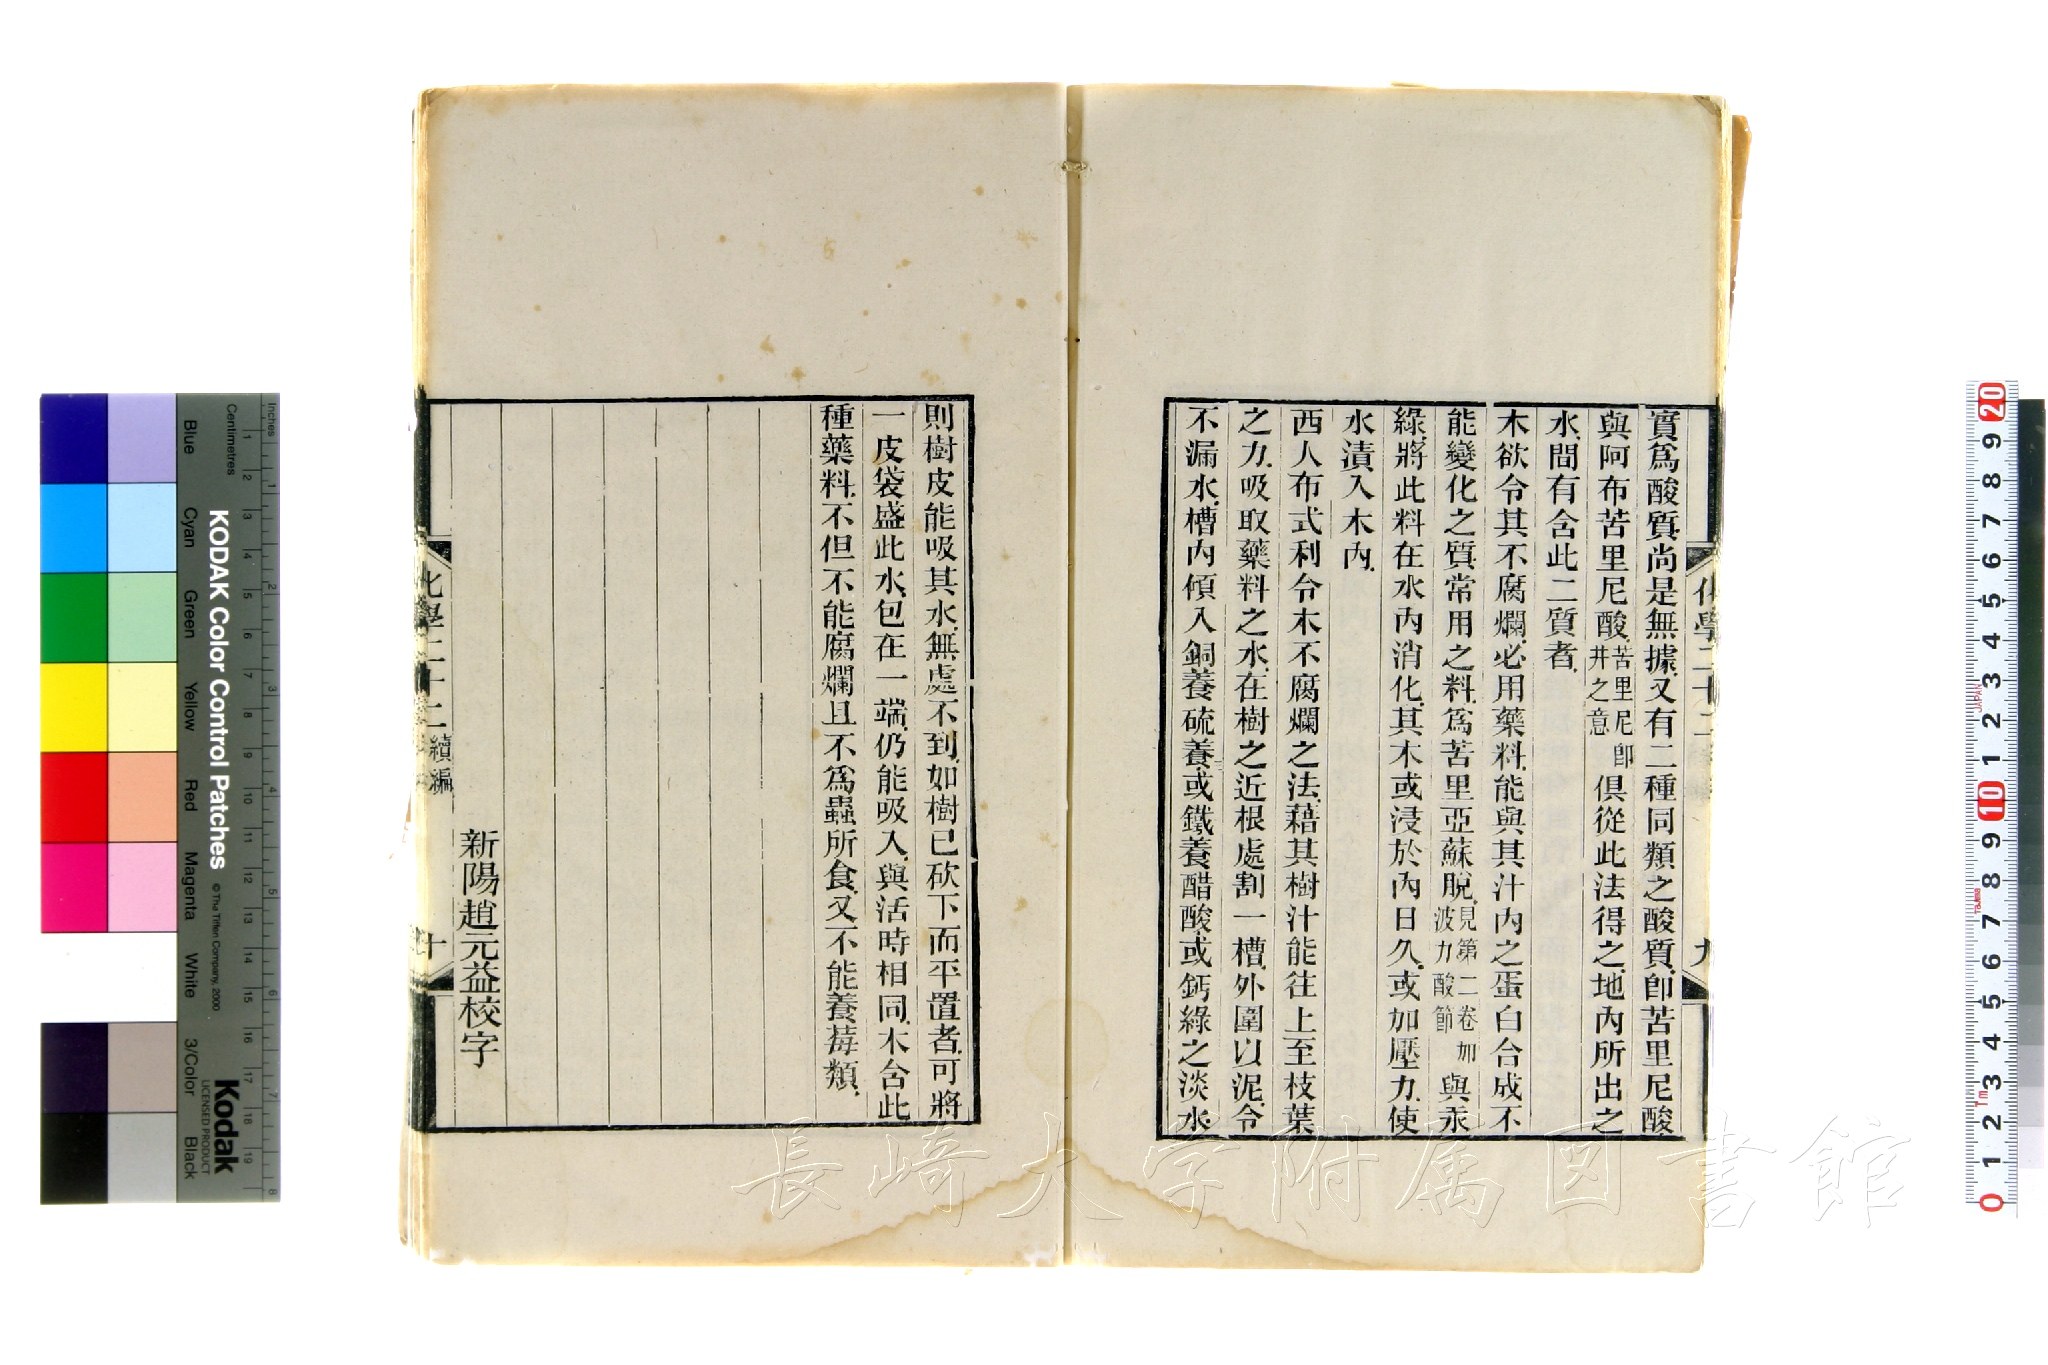 實爲酸質尚是無據又有二種同類之酸質卽苦里尼酸
與阿布苦里尼酸苦里尼卽井之意俱從此法得之地內所出之
水間有含此二質者
木欲令其不腐爛必用藥料能與其汁內之蛋白合成不
能變化之質常用之料爲苦里亞蘇脫見第二卷加波力酸節與汞
綠將此料在水內消化其木或浸於內日久或加壓力使
水漬入木內
西人布式利令木不腐爛之法藉其樹汁能往上至枝葉
之力吸取藥料之水在樹之近根處割一槽外圍以泥令
不漏水槽內傾入銅養硫養或鐵養醋酸或鈣綠之淡水
化學二十二
九
則樹皮能吸其水無處不到如樹已砍下而平置者可將
一皮袋盛此水包在一端仍能吸入與活時相同木含此
種藥料不但不能腐爛且不爲蟲所食又不能養莓類
新陽趙元益校字
化學二十二 續編
十
長崎大学附属図書館
KODAK Color Control Patches
©The Tiffen Company, 2000
Kodak
LICENSED PRODUCT
Inches
Centimetres
Blue
Cyan
Green
Yellow
Red
Magenta
White
3/Color
Black
1 2 3 4 5 6 7 8 9 10 11 12 13 14 15 16 17 18 19
1 2 3 4 5 6 7 8
20 9 8 7 6 5 4 3 2 1 10 9 8 7 6 5 4 3 2 1 0
JAPAN
Tajima